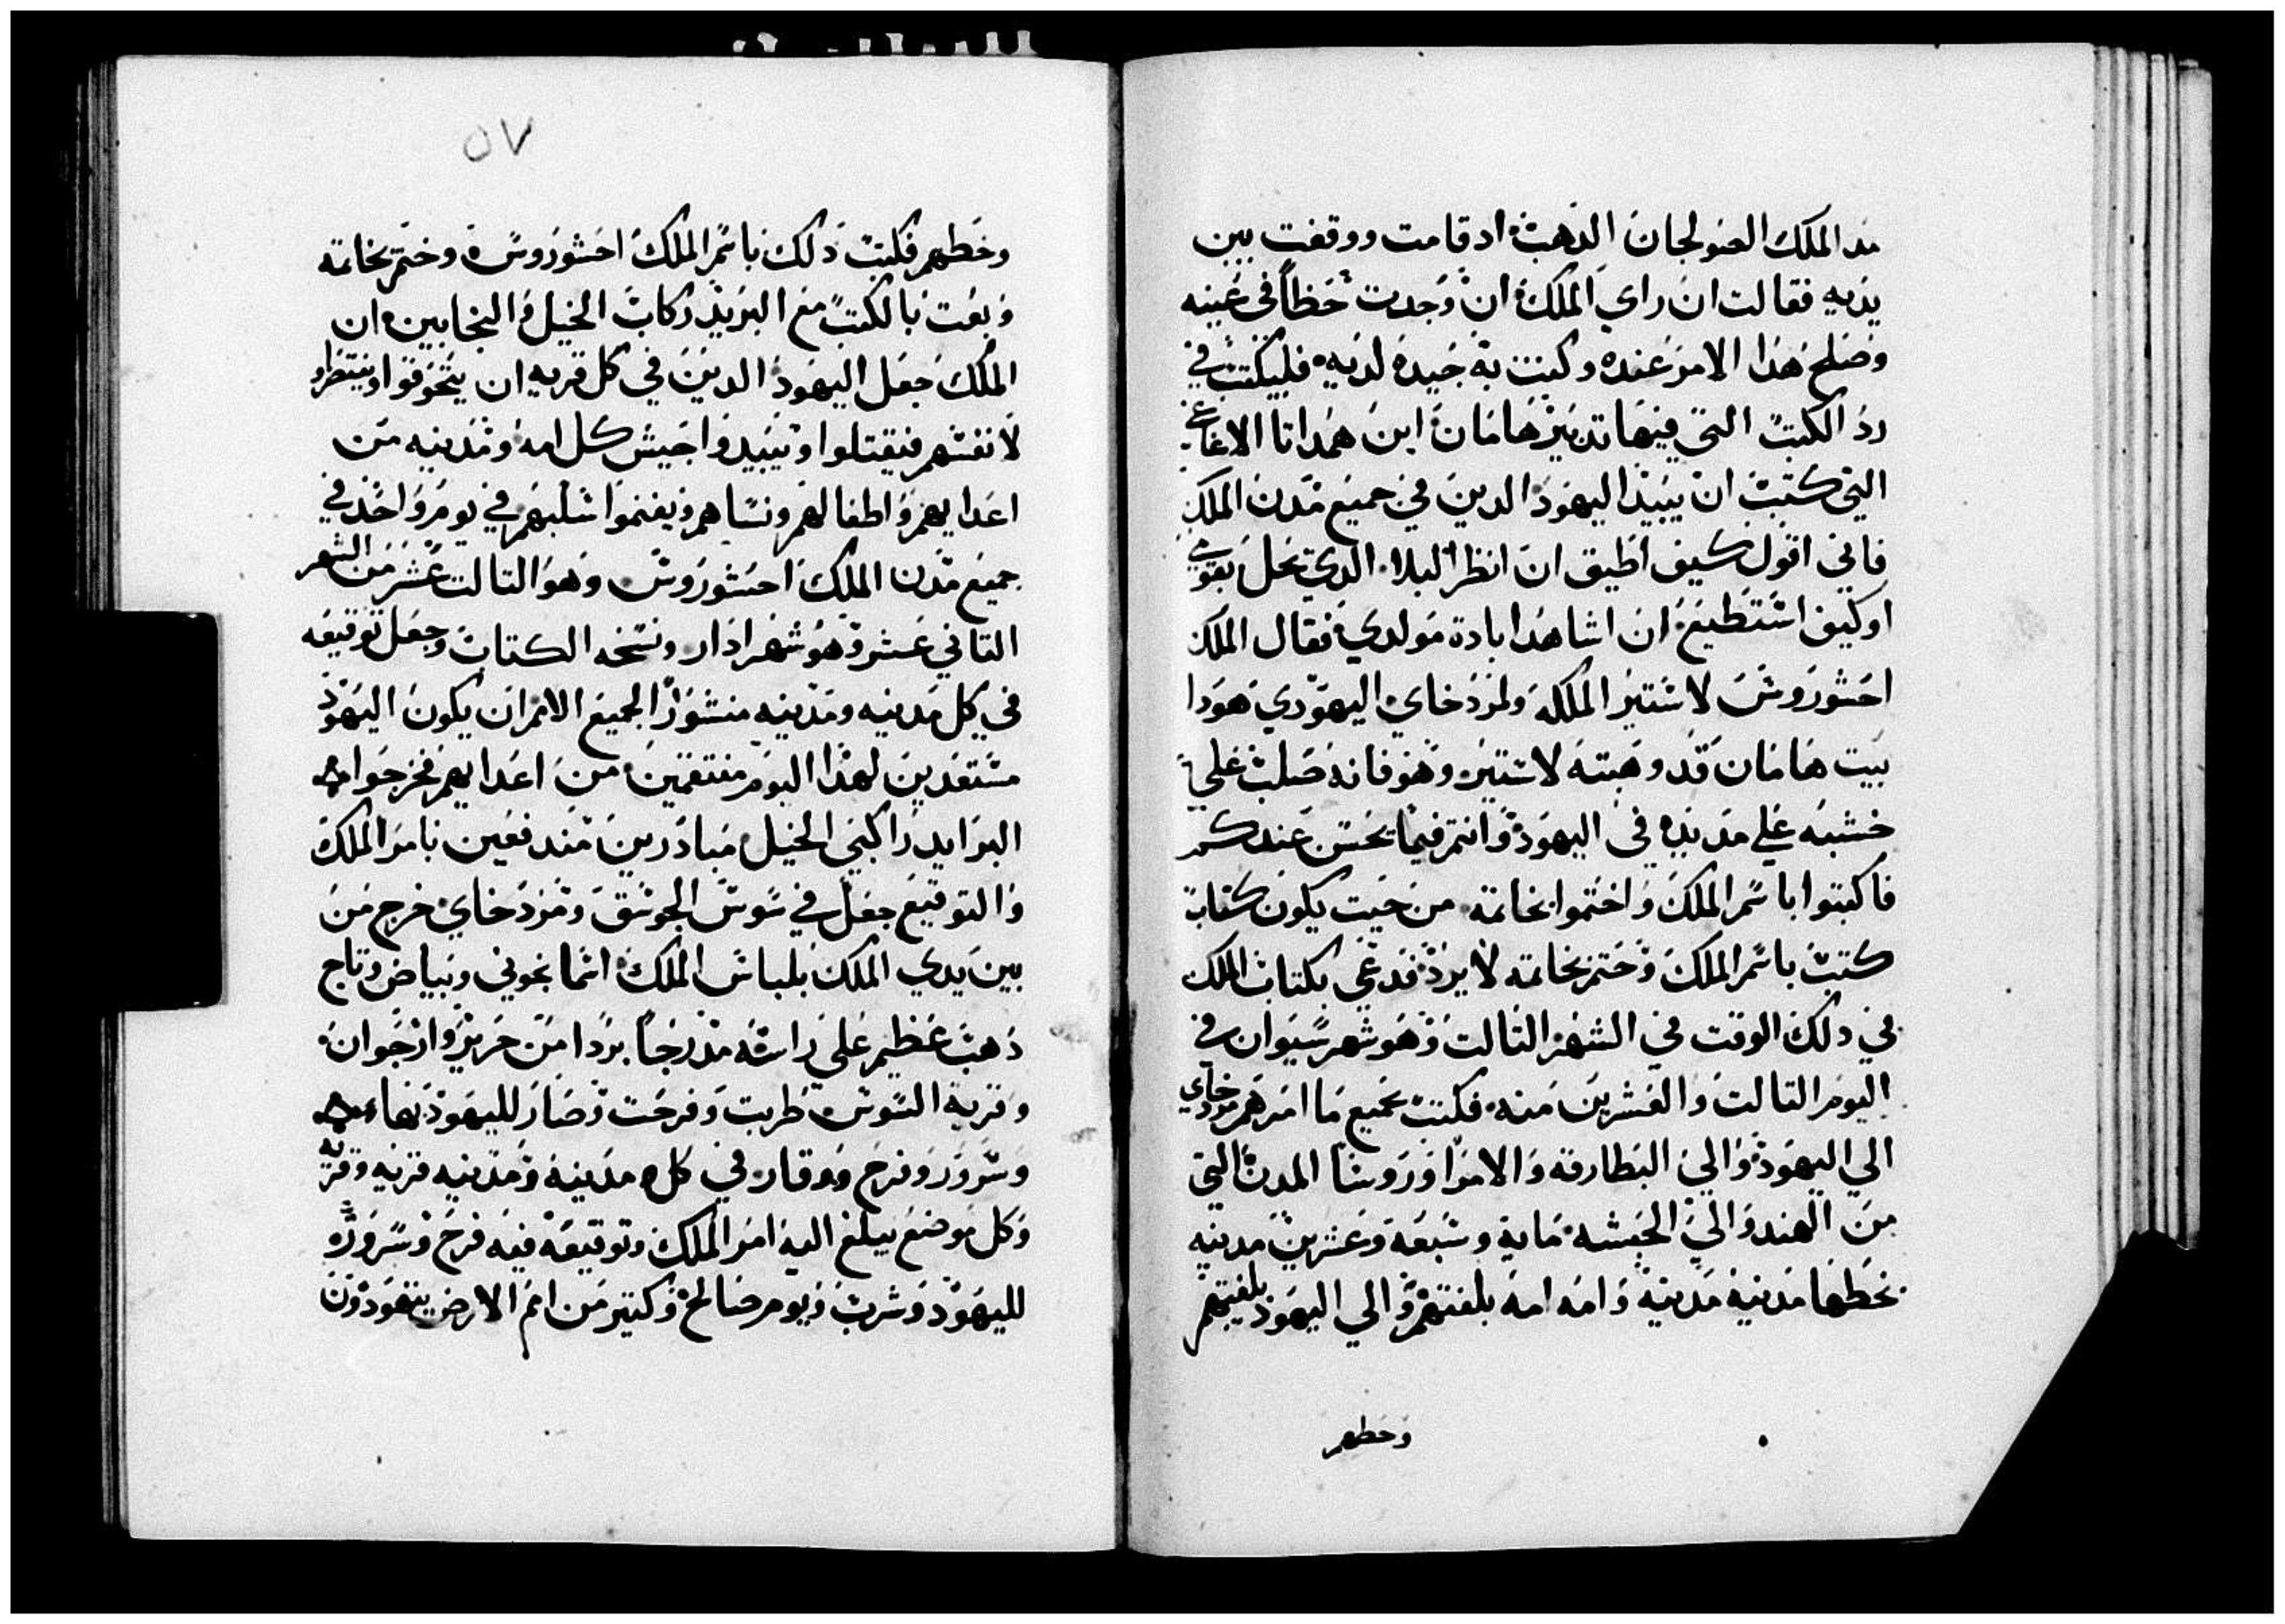 مد الملك الصولجان الذهب ادقامت ووقفت بين
يديه فقالت ان راي الملك ان وجدت حظا في عينه
وصلح هذا الامر عنده وكنت به جيده لديه فليكتب في
رد الكتب التي فيها تدبير هامان ابن همداتا الاغاغي
التي كتبت ان يبيد اليهود الدين في جميع مدن الملك
فاني اقول كيف اطيق ان انظر البلا الدي يحل بقومي
اوكيف استطيع ان اشاهد ابادة مولدي فقال الملك
احشوروش لاستير الملكه ولمردخاي اليهودي هودا
بيت هامان قد وهبته لاستير وهو فانه صلب علي
خشبه علي مد يديه في اليهود وانتم فيما يحسن عندكم
فاكتبوا باسم الملك واختموا بخاتمه من حيت يكون كتاب
كتب باسم الملك وختم بخاتمه لا يرد فدعي بكتاب الملك
في دلك الوقت في الشهر التالت وهو شهر سيوان في
اليوم التالت والعشرين منه فكتب بجميع ما امرهم مردخاي
الي اليهود والي البطارقه والامرا وروسا المدن التي
من الهند والي الحبشه مايه وسبعة وعشرين مدينه
بخطها مدينه مدينه وامه امه بلغتهم والي اليهود بلغتهم
وخطهم
٥٧
وخطهم فكتب دلك باسم الملك احشوروس وختم بخاتمه
وبعت بالكتب مع البريد ركاب الخيل والنجابين ان
الملك جعل اليهود الدين في كل قريه ان يتجوقوا وينتظروا
لانفسهم فيقتلوا ويبيدوا جيش كل امه ومدينه من
اعدايهم واطفالهم ونساهم ويغنموا سلبهم في يوم واحد في
جميع مدن الملك احشوروش وهو التالت عشر من الشهر
التاني عشر وهو شهر ادار ونسخه الكتاب وجعل توقيعه
في كل مدينه ومدينه منشورا لجميع الامم ان يكون اليهود
مستعدين لهذا اليوم منتقمين من اعدايهم فخرجوا
البرايد راكبي الخيل مبادرين مندفعين بامر الملك
والتوقيع جعل في سوس الجوسق ومردخاي خرج من
بين يدي الملك بلباس الملك اسمانجوني وبياض وتاج
دهب عظيم علي راسه مدرجا بردا من حرير وارجوان
وقرية السوس طربت وفرحت وصار لليهود بهاء
وسرور وفرح ووقار في كل مدينه ومدينه قريه وقريه
وكل موضع يبلغ اليه امر الملك وتوقيعه فيه فرح وسرور
لليهود وشرب ويوم صالح وكتير من امم الارض يتهودون